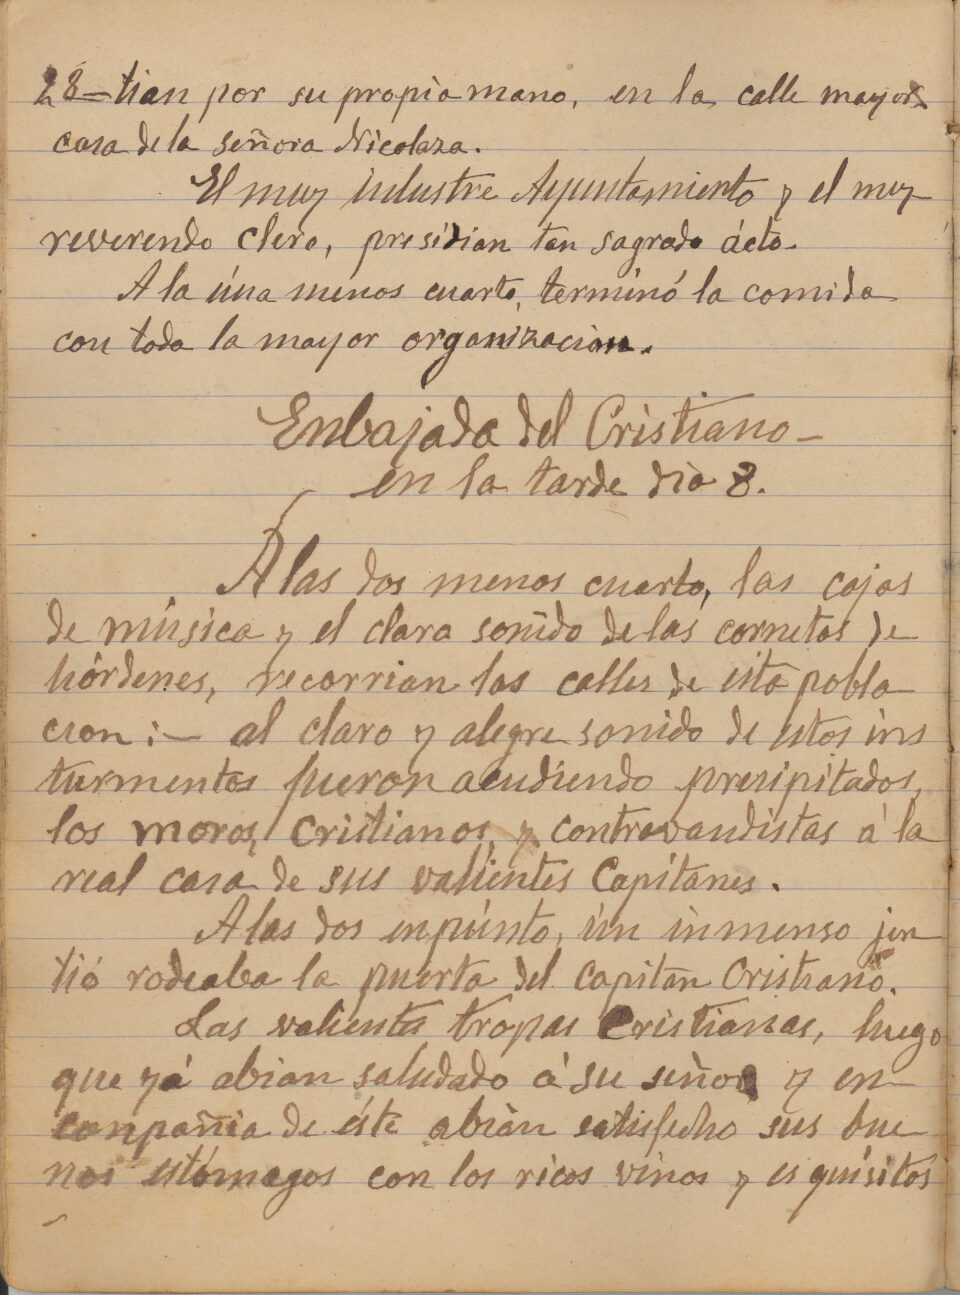 28=tian por su propia mano, en la calle mayor
casa de la señora Nicolaza.
El muy inlustre Ayuntamiento y el muy
reverendo clero, presidian tan sagrado ácto.
A la úna menos cuarto, terminó la comida
con toda la mayor organizacion.
Enbajada del Cristiano
en la tarde dia 8.
A las dos menos cuarto, las cajas
de música y el clara sonido de las cornetas de
hórdenes, recorrian las calles de esta pobla
cion:— al claro y alegre sonido de estos ins
turmentos fueron acudiendo presipitados,
los moros, Cristianos, y contrevandistas á la
real casa de sus valientes Capitanes.
A las dos enpúnto, ún inmenso jen
tió rodeaba la puerta del capitan Cristiano.
Las valientes tropas Cristianas, luego
que yá abian saludado á su señor y en
conpañia de éste abian satisfecho sus bue
nos estómagos con los ricos vinos y esquisitos